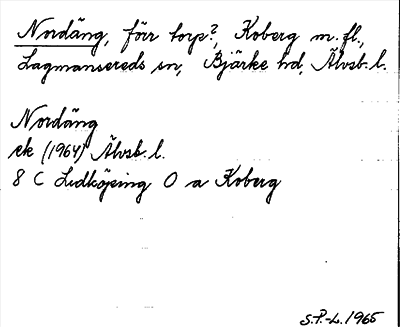 Nordäng, förr torp?, Koberg m.fl.,
Lagmansereds sn, Bjärke hd, Älvsb. l.
Nordäng
ek (1964) Älvsb. l.
8 C Lidköping O a Koberg
S.P.-L. 1965